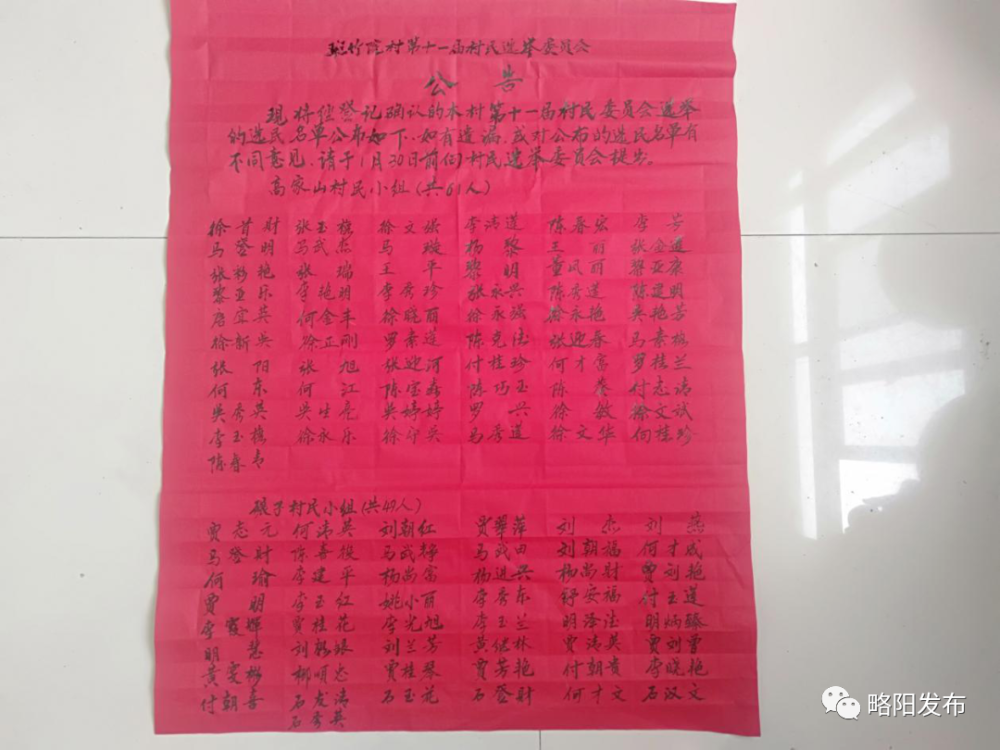 斑竹院村第十一届村民选举委员会
公告
现将经登记确认的本村第十一届村民委员会选举
的选民名单公布如下.如有遗漏.或对公布的选民名单有
不同意见.请于1月30日前向村民选举委员会提出。
高家山村民小组(共61人)
徐首财 徐文 李清莲 陈春宏 李芳
马登明 马武杰 马 杨黎 王丽 张金莲
张彩艳 张瑞 王平 黎明 董凤丽 黎亚康
黎亚乐 李艳明 李秀珍 张永兴 陈秀莲 陈建明
何金车 徐晓丽 徐永强 徐永艳 吴艳芳
徐新 徐正刚 罗素莲 陈克法 张迎春 马素梅
张阳 张旭 张迎河 付桂珍 何才富 罗桂兰
何东 何江 陈宝 陈巧玉 陈 付志清
吴秀英 吴生亮 吴婷婷 罗兴 徐敏 徐文斌
李玉 徐永乐 徐守兵 马秀莲 徐文华 何桂珍
陈春
碾子村民小组(共49人)
贾志元 何清英 刘朝红 贾翠萍 刘杰 刘燕
马登财 陈喜 马武 马武田 刘朝福 何才成
何瑜 李建平 杨尚富 杨进兴 杨尚财 贾刘艳
贾明 李玉红 姚小丽 李秀东 舒安福 付玉莲
李霞辉 贾桂花 李光旭 李玉兰 明泽法 明炳臻
明慧 刘 刘兰芳 黄 林 贾清英 贾刘雪
黄雯彬 柳顺 贾桂琴 贾芳艳 付朝贵 李晓艳
付朝喜 石友清 石玉花 石登财 何才文 石汉文
石秀英
略阳发布